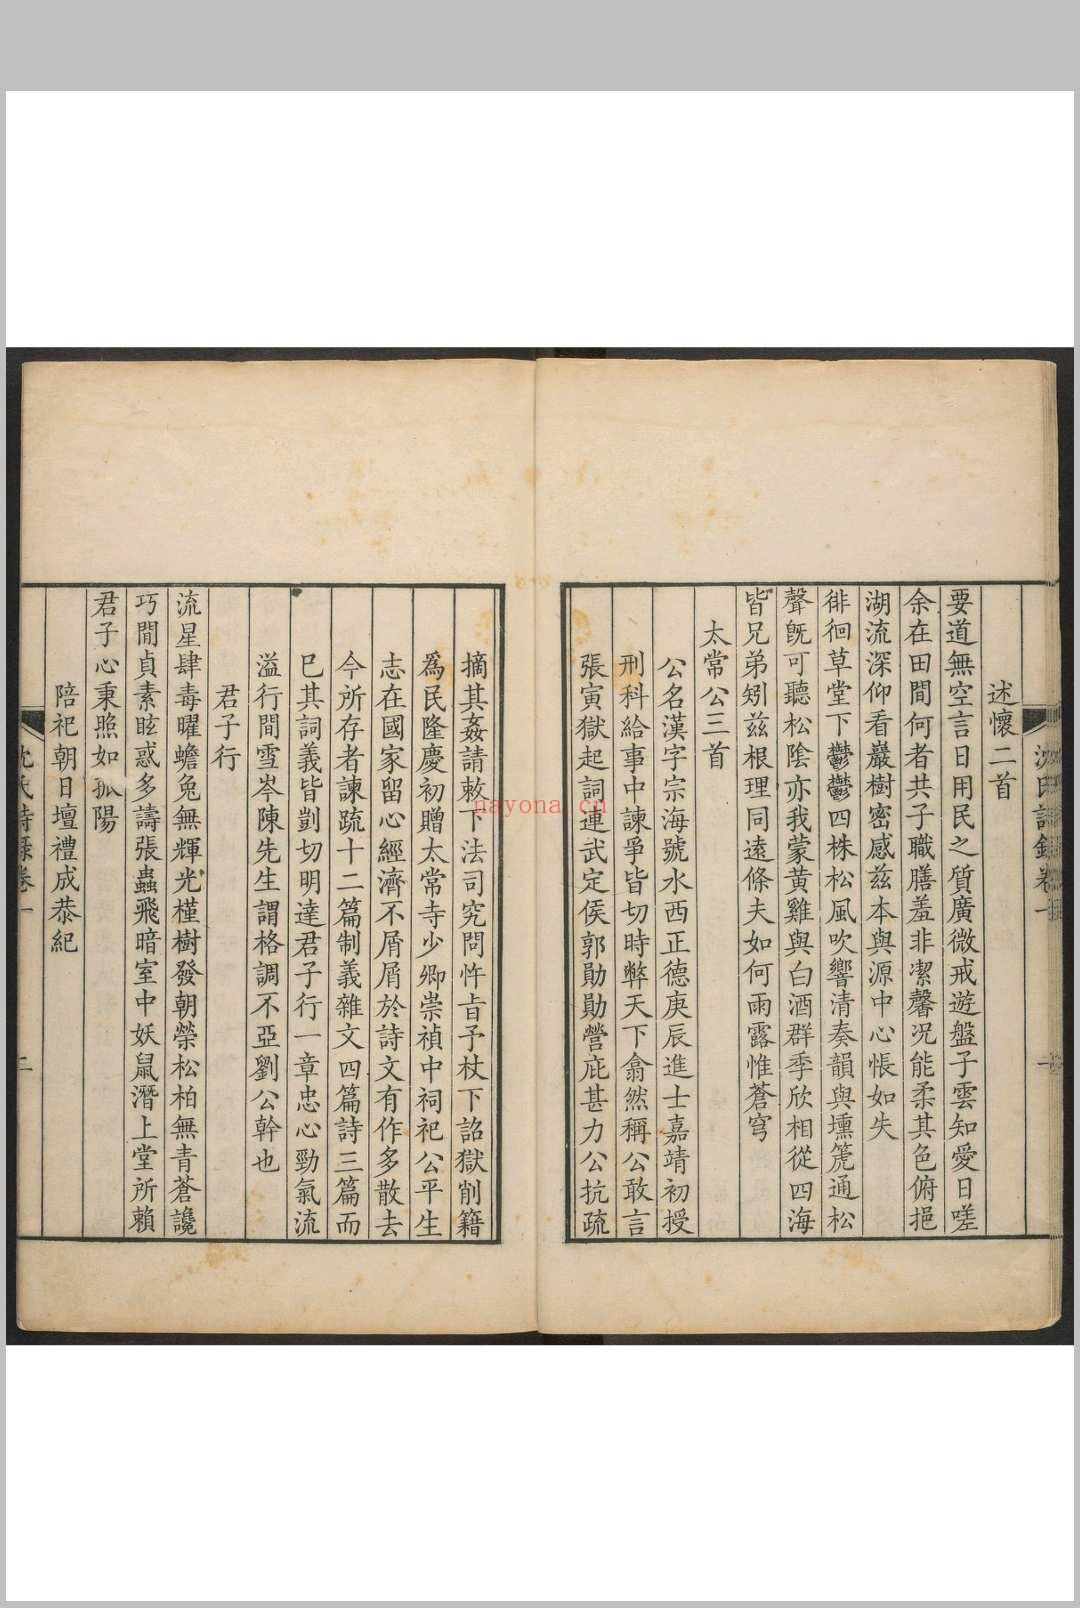 沈氏詩錄卷一
述懷二首
要道無空言日用民之質廣微戒遊盤子雲知愛日嗟
余在田間何者共子職膳羞非潔馨况能柔其色俯挹
湖流深仰看巖樹密感茲本與源中心悵如失
徘徊草堂下鬱鬱四株松風吹響清奏韻與壎箎通松
聲既可聽松陰亦我蒙黃雞與白酒群季欣相從四海
皆兄弟矧茲根理同遠條夫如何雨露惟蒼穹
太常公三首
公名漢字宗海號水西正德庚辰進士嘉靖初授
刑科給事中諫爭皆切時弊天下翕然稱公敢言
張寅獄起詞連武定侯郭勛勛營庇甚力公抗疏
摘其姦請敕下法司究問忤旨予杖下詔獄削籍
爲民隆慶初贈太常寺少卿崇禎中祠祀公平生
志在國家留心經濟不屑屑於詩文有作多散去
今所存者諫疏十二篇制義雜文四篇詩三篇而
已其詞義皆剴切明達君子行一章忠心勁氣流
溢行間雪岑陳先生謂格調不亞劉公幹也
君子行
流星肆毒曜蟾兔無輝光槿樹發朝榮松柏無青蒼讒
巧閒貞素眩惑多譸張蟲飛暗室中妖鼠潛上堂所賴
君子心秉炤如孤陽
陪祀朝日壇禮成恭紀
沈氏詩錄卷一
二
nayona.cn